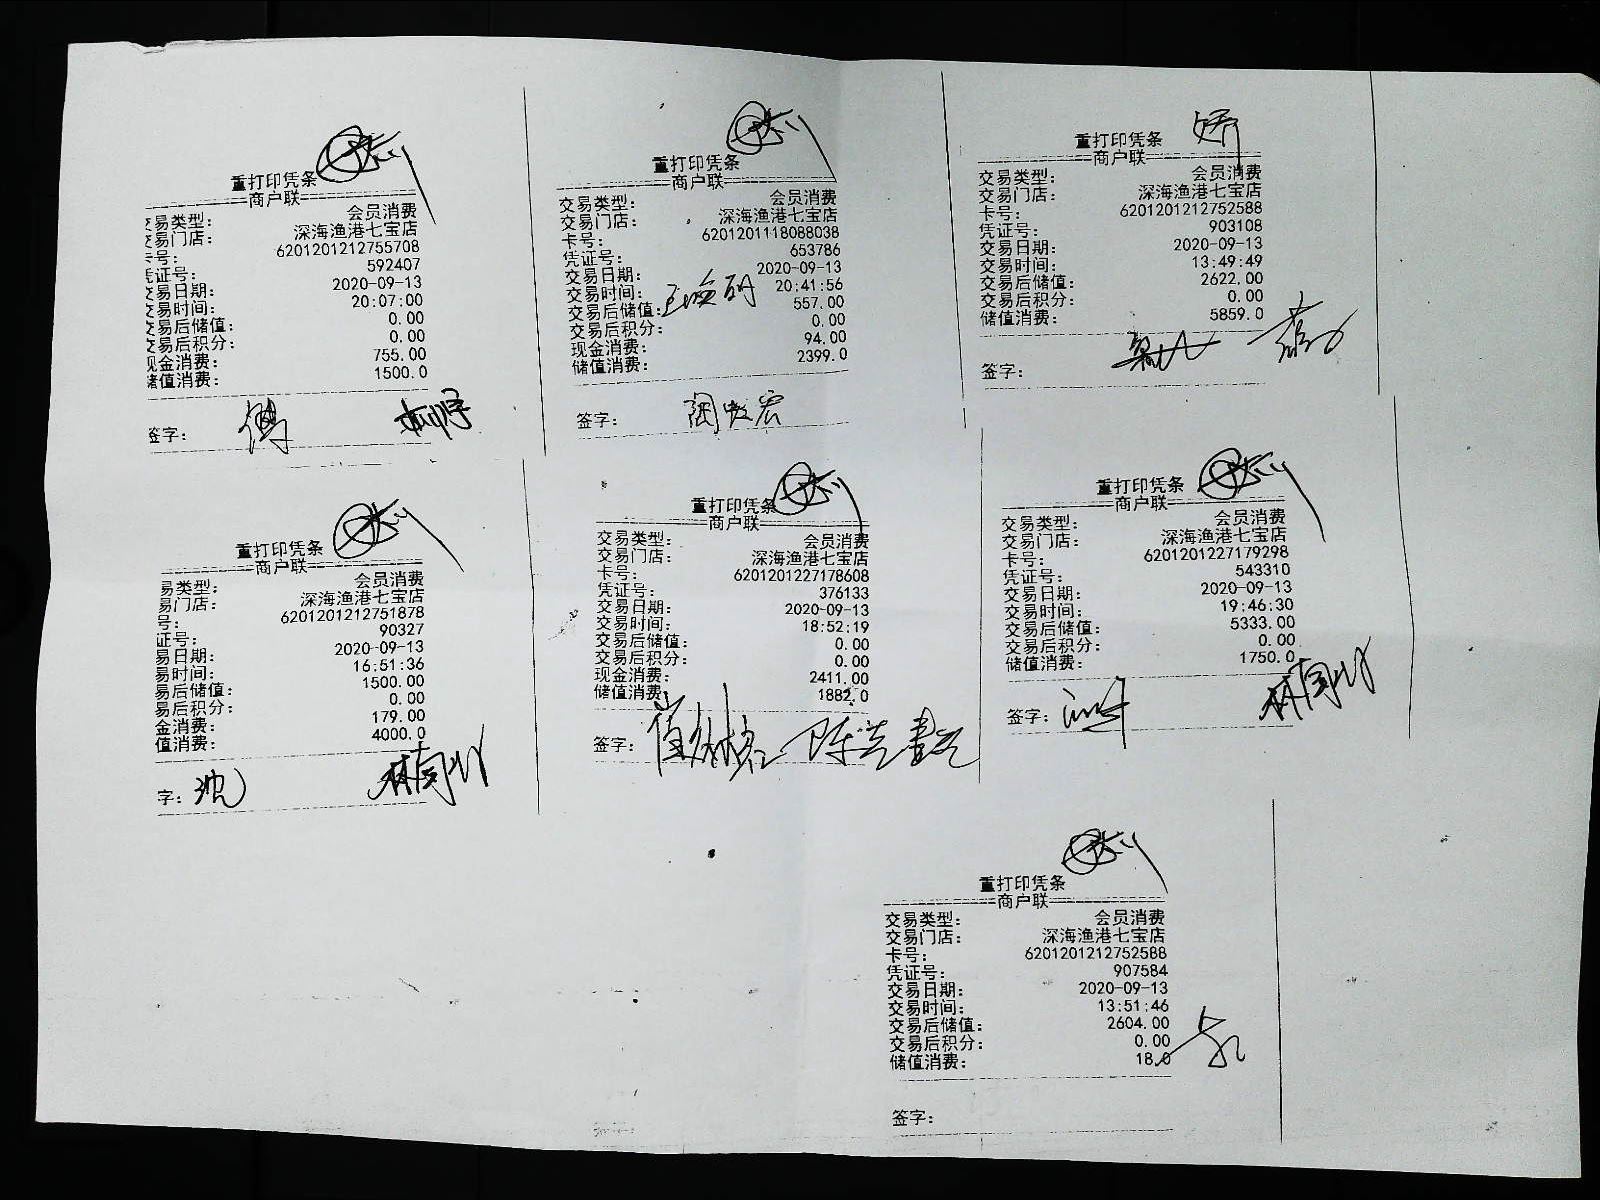 重打印凭条
商户联
交易类型： 会员消费
交易门店： 深海渔港七宝店
卡号： 6201201212755708
凭证号： 592407
交易日期： 2020-09-13
交易时间： 20:07:00
交易后储值： 0.00
交易后积分： 0.00
现金消费： 755.00
储值消费： 1500.0
签字：
重打印凭条
商户联
交易类型： 会员消费
交易门店： 深海渔港七宝店
卡号： 6201201118088038
凭证号： 653786
交易日期： 2020-09-13
交易时间： 20:41:56
交易后储值： 557.00
交易后积分： 0.00
现金消费： 94.00
储值消费： 2399.0
签字：
重打印凭条
商户联
交易类型： 会员消费
交易门店： 深海渔港七宝店
卡号： 6201201212752588
凭证号： 903108
交易日期： 2020-09-13
交易时间： 13:49:49
交易后储值： 2622.00
交易后积分： 0.00
储值消费： 5859.0
签字：
重打印凭条
商户联
易类型： 会员消费
易门店： 深海渔港七宝店
号： 6201201212751878
证号： 90327
易日期： 2020-09-13
易时间： 16:51:36
易后储值： 1500.00
易后积分： 0.00
金消费： 179.00
值消费： 4000.0
字： 沈
重打印凭条
商户联
交易类型： 会员消费
交易门店： 深海渔港七宝店
卡号： 6201201227178608
凭证号： 376133
交易日期： 2020-09-13
交易时间： 18:52:19
交易后储值： 0.00
交易后积分： 0.00
现金消费： 2411.00
储值消费： 1882.0
签字：
重打印凭条
商户联
交易类型： 会员消费
交易门店： 深海渔港七宝店
卡号： 6201201227179298
凭证号： 543310
交易日期： 2020-09-13
交易时间： 19:46:30
交易后储值： 5333.00
交易后积分： 0.00
储值消费： 1750.0
签字：
重打印凭条
商户联
交易类型： 会员消费
交易门店： 深海渔港七宝店
卡号： 6201201212752588
凭证号： 907584
交易日期： 2020-09-13
交易时间： 13:51:46
交易后储值： 2604.00
交易后积分： 0.00
储值消费： 18.0
签字：